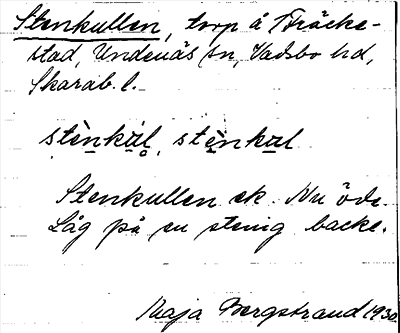 Stenkullen, torp å Bräcke-
stad, Undenäs sn, Vadsbo hd,
Skarab. l.
stènkul, stènkul
Stenkullen ek. Nu öde.
Låg på en stenig backe.
Maja Bergstrand 1930